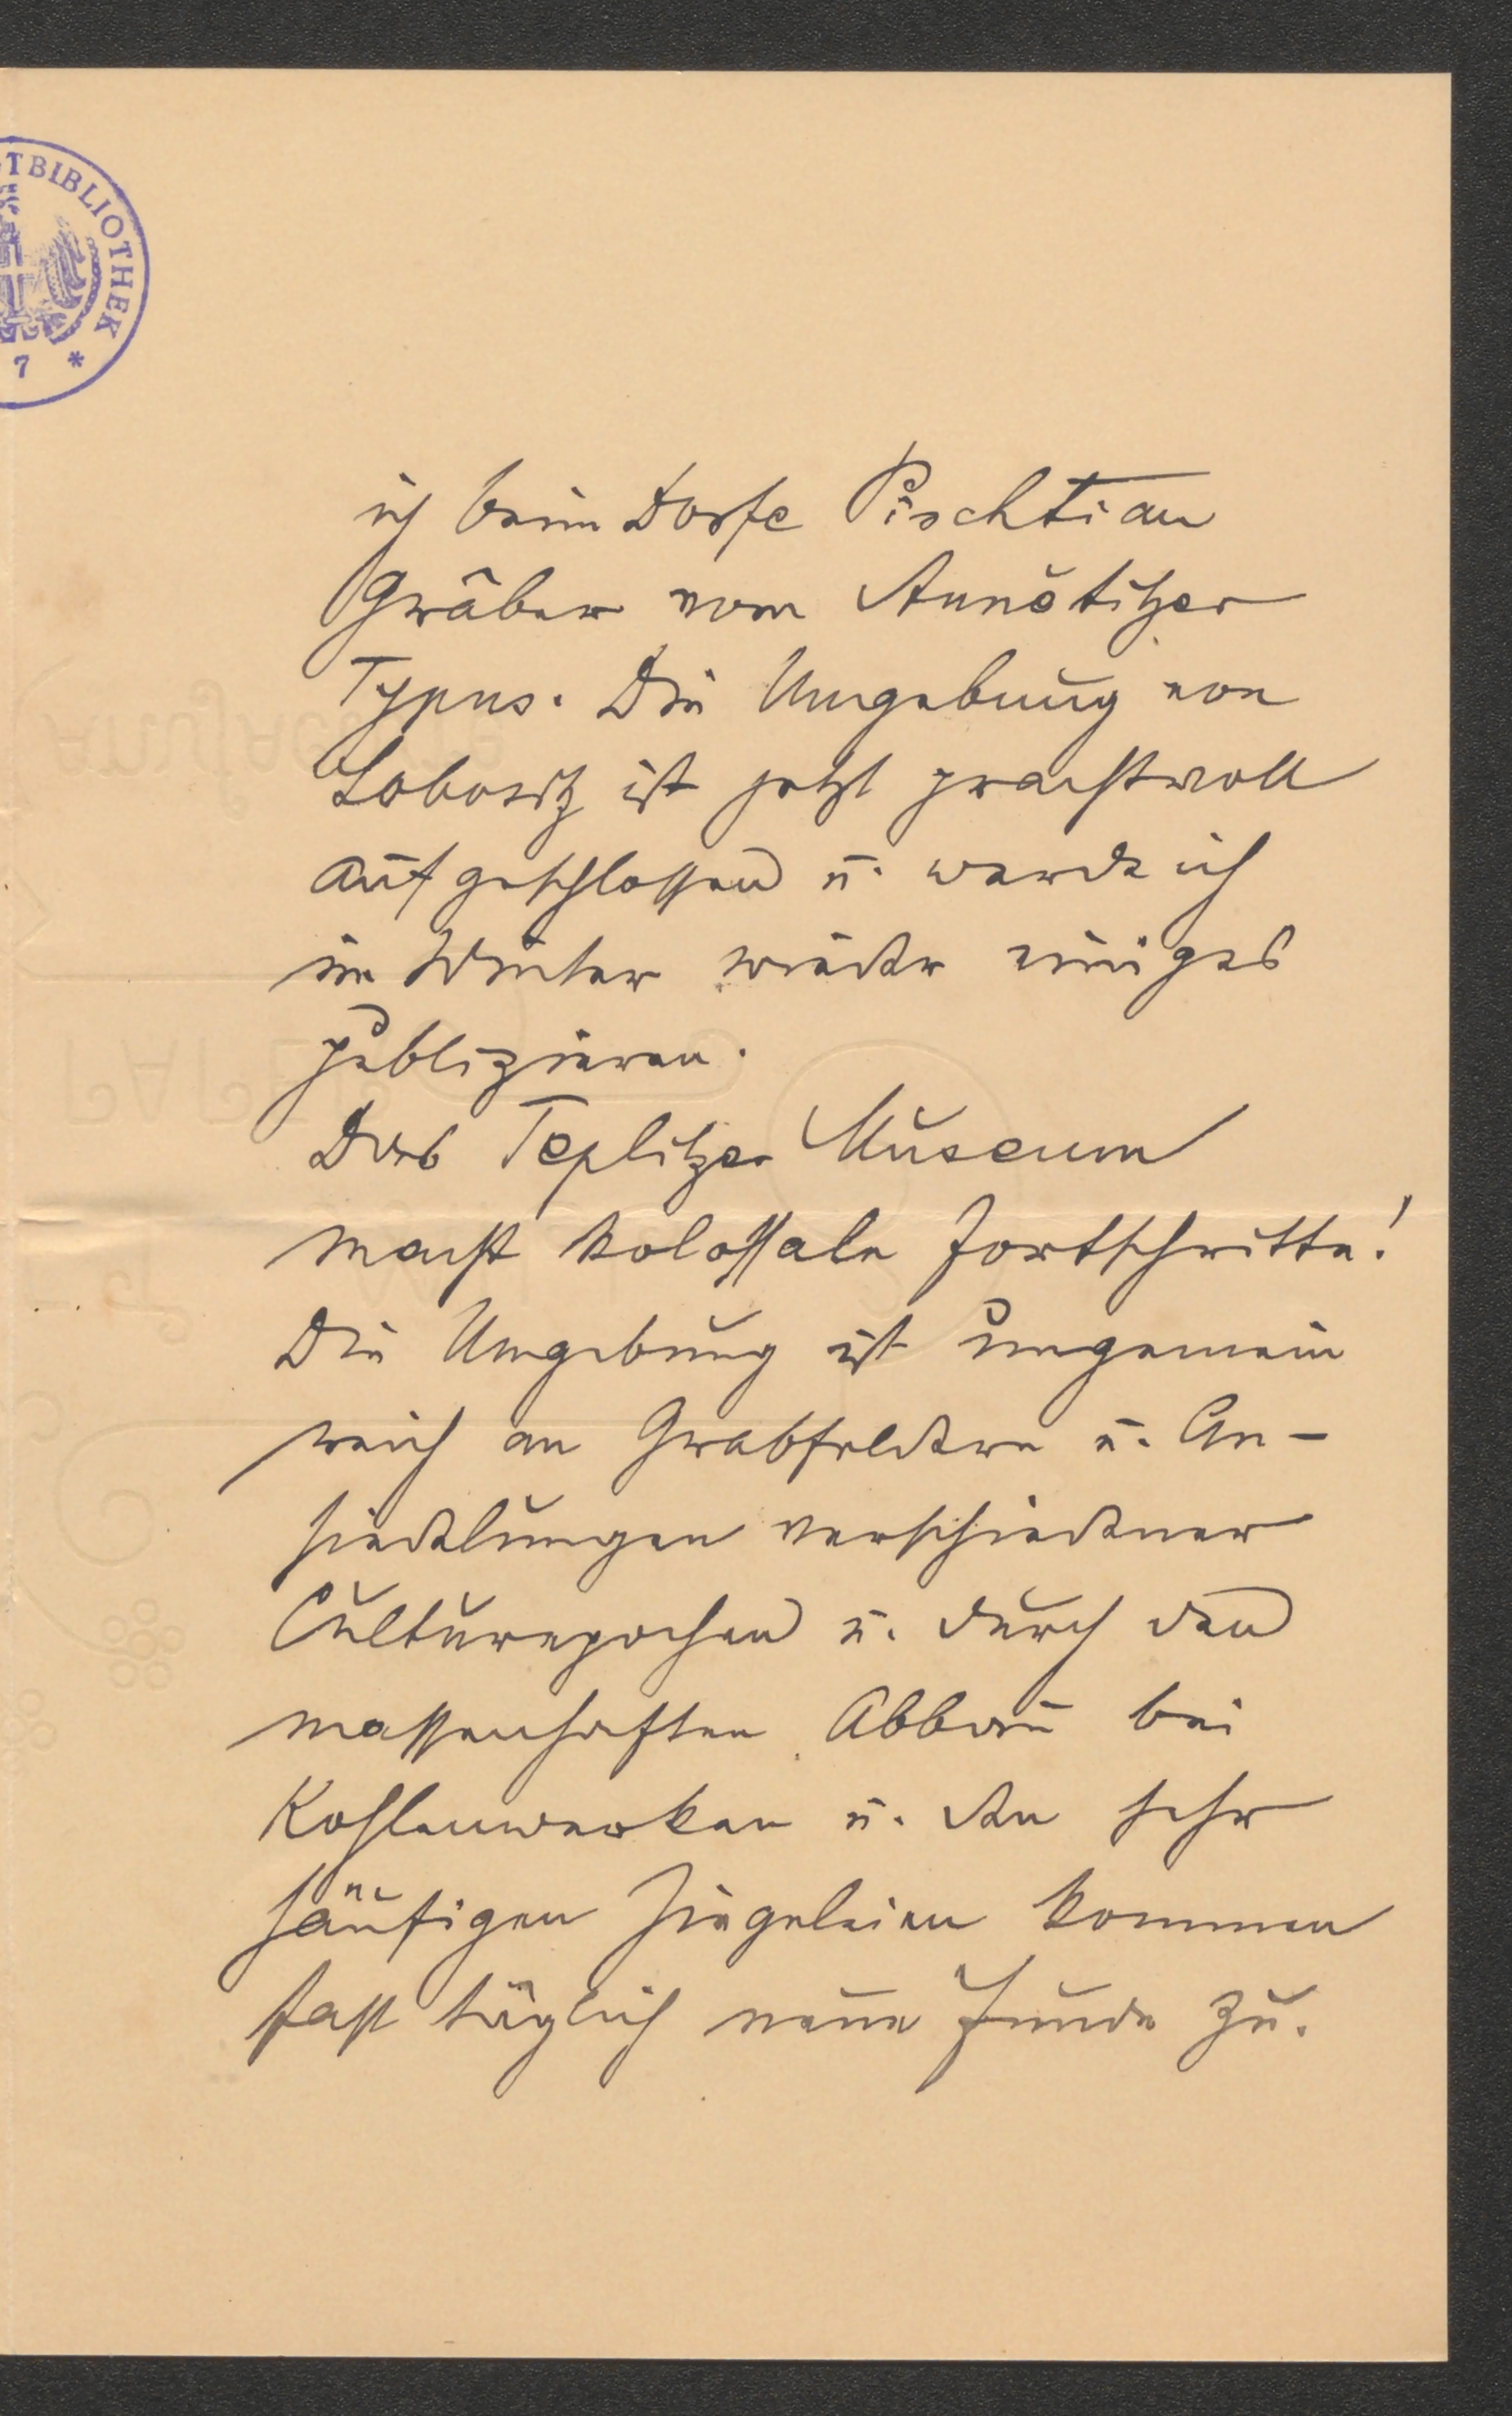 TBIBLIOTHEK
7 *
ich beim Dorfe Pischtian
Gräber vom Aunětitzer
Typus. Die Umgebung von
Lobositz ist jetzt prachtvoll
aufgeschlossen u. werde ich
im Winter wieder einiges
publizieren.
Das Teplitzer Museum
macht kolossale Fortschritte!
Die Umgebung ist ungemein
reich an Grabfeldern u. An-
siedlungen verschiedener
Culturepochen u. durch den
massenhaften Abbau bei
Kohlenwerken u. den sehr
häufigen Ziegeleien kommen
fast täglich neue Funde zu.